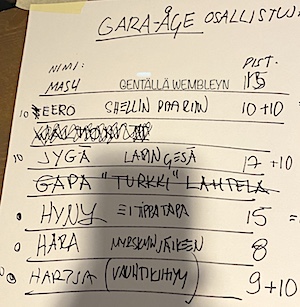 GARA-ÅGE OSALLISTUJ
NIMI: PIST.
MASU GENTÄLLÄ WEMBLEYN 15
10 EERO SHELLIN BAARIIN 10+10
10 JYGÄ LAPINGESÄ 17 +10
GAPA "TURKKI" LAHTELA
HYNY EITIPPATAPA 15 =
0 HARA MYRSKYNJÄLKEN 8
0 HARTSA (VAUHTIKIIHTYY) 9+10